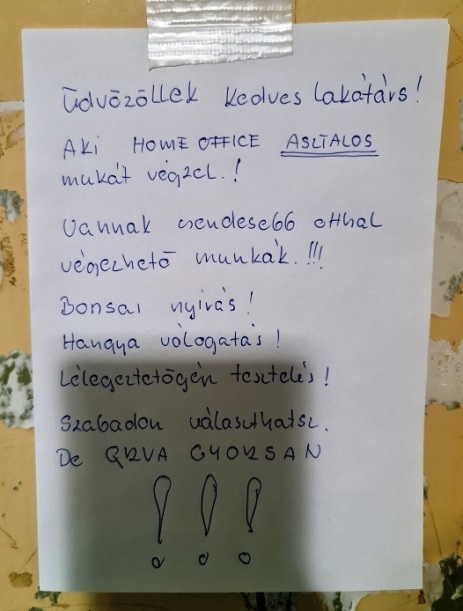 Üdvözöllek kedves lakótárs!
Aki HOME OFFICE ASZTALOS
mukát végzel.!
Vannak csendesebb otthol
végezhető munkák.!!!
Bonsai nyírás!
Hangya válogatás!
Lélegeztetőgén tesztelés!
Szabadon választhatsz.
De QRVA GYORSAN
!!!